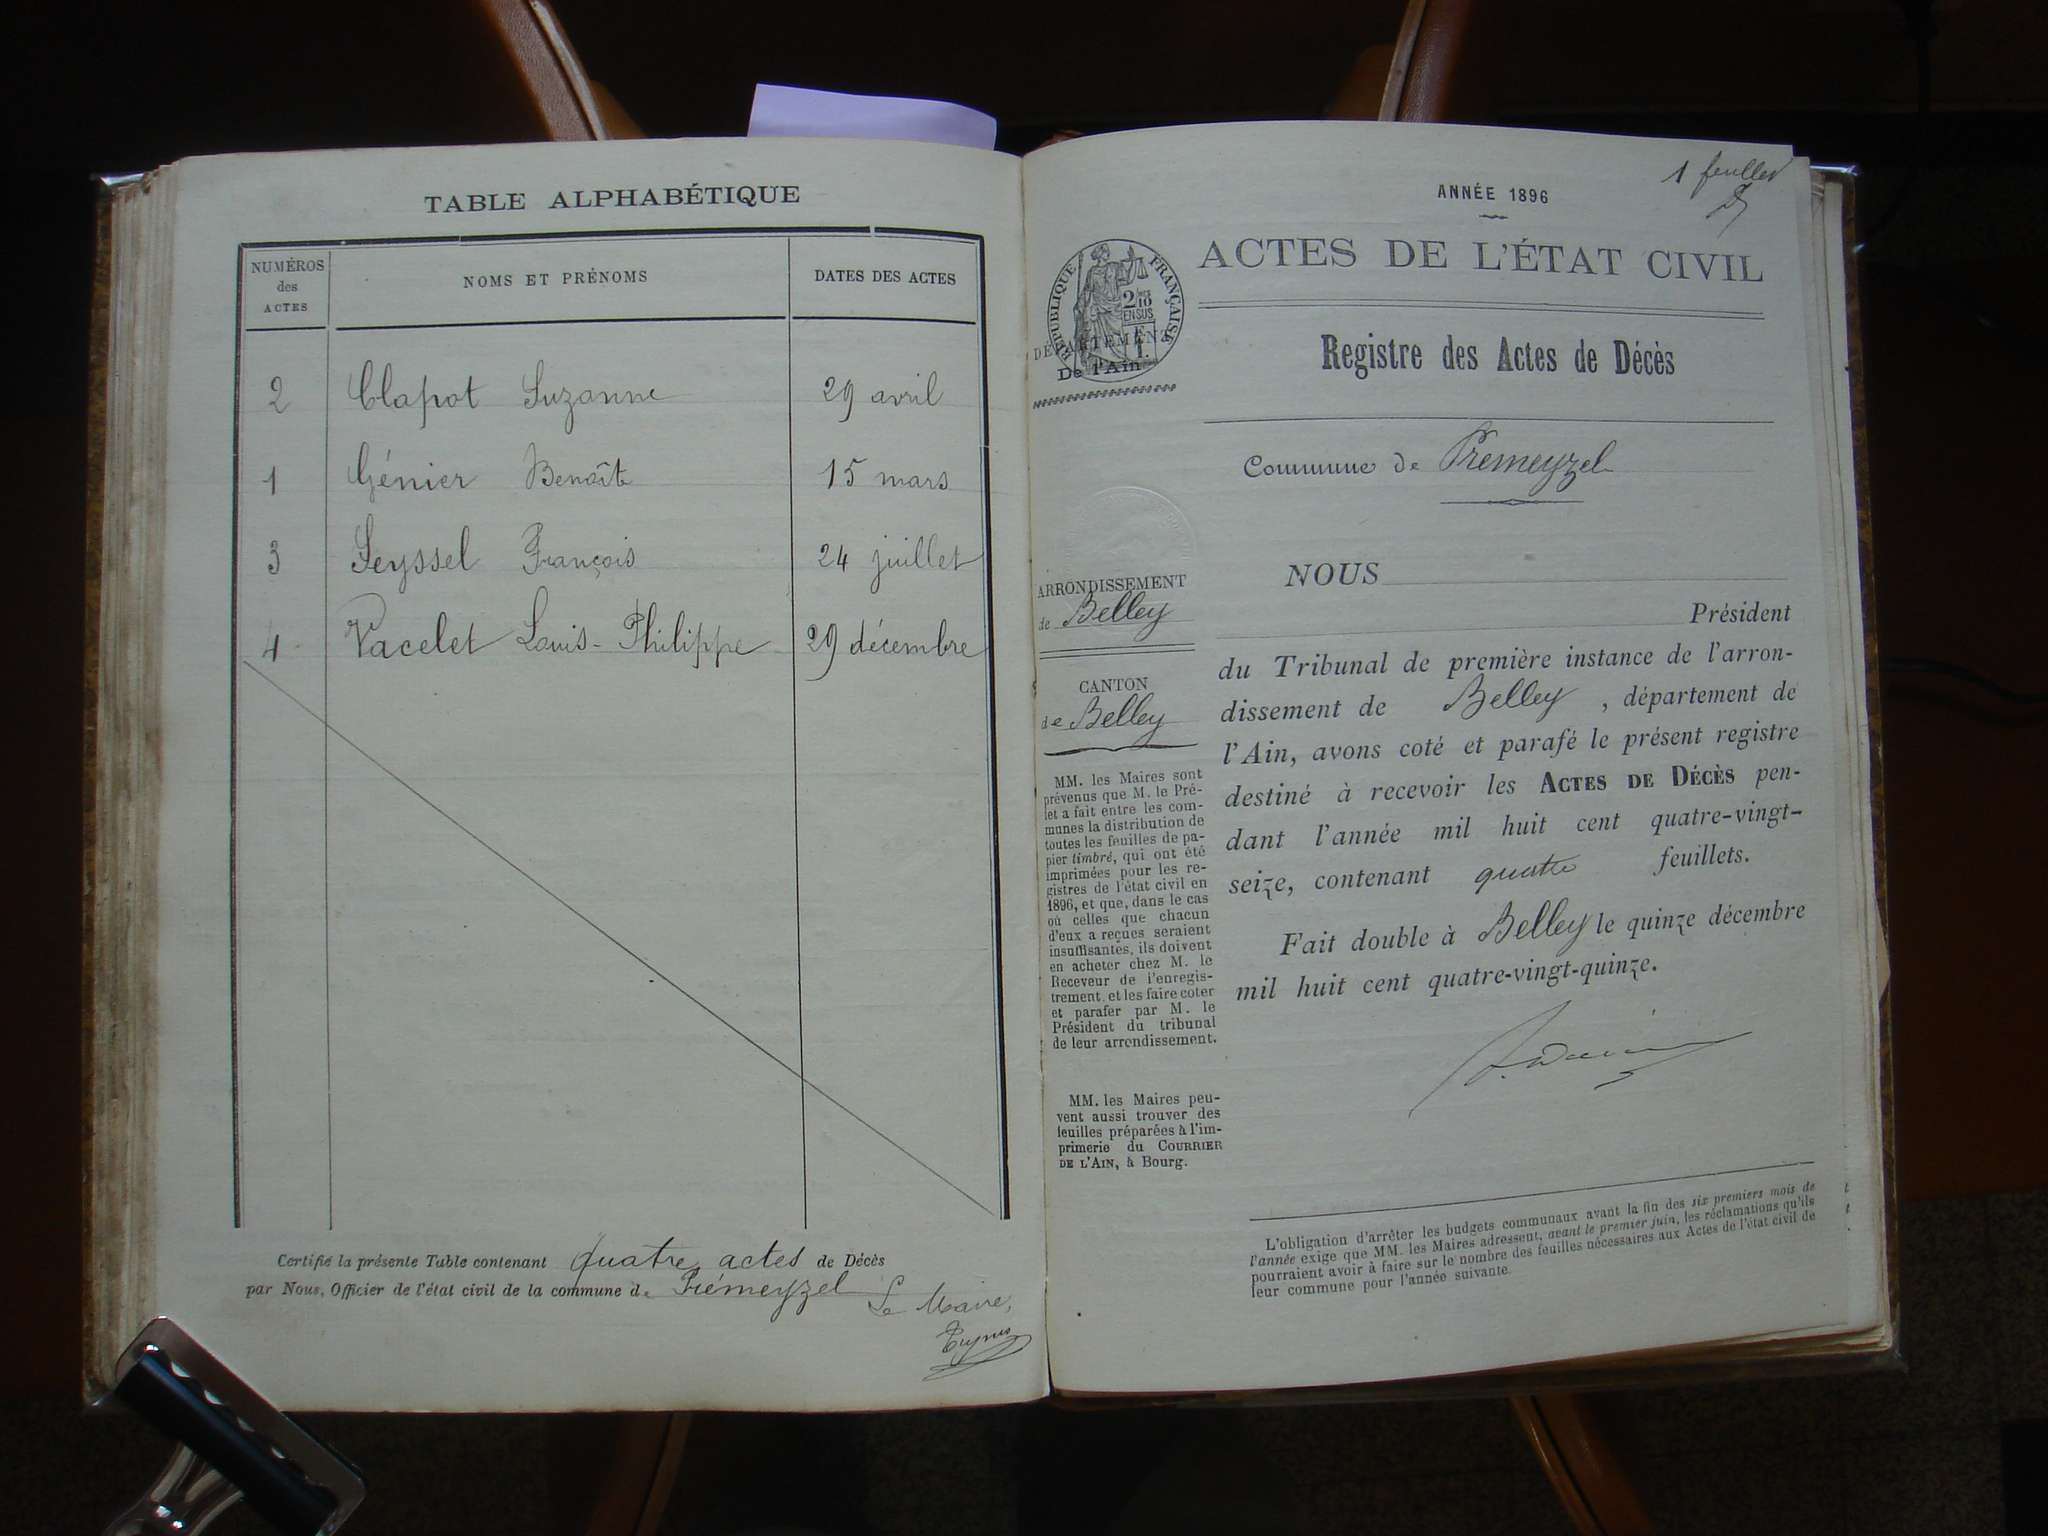 TABLE ALPHABÉTIQUE
NUMÉROS
des
ACTES
NOMS ET PRÉNOMS
DATES DES ACTES
2 Clapot Suzanne 29 avril
1 Génier Benoît 15 mars
3 Seyssel François 24 juillet
4 Vacelet Louis-Philippe 29 décembre
Certifié la présente Table contenant quatre actes de Décès
par Nous, Officier de l'état civil de la commune de Prémeyzel
Le Maire,
1 feuillet
ANNÉE 1896
ACTES DE L'ÉTAT CIVIL
RÉPUBLIQUE FRANÇAISE
2
DÉPARTEMENT
De l'Ain
Registre des Actes de Décès
Commune de Premeyzel
ARRONDISSEMENT
de Belley
CANTON
de Belley
MM. les Maires sont
prévenus que M. le Pré-
fet a fait entre les com-
munes la distribution de
toutes les feuilles de pa-
pier timbré, qui ont été
imprimées pour les re-
gistres de l'état civil en
1896, et que, dans le cas
où celles que chacun
d'eux a reçues seraient
insuffisantes, ils doivent
en acheter chez M. le
Receveur de l'enregis-
trement, et les faire coter
et parafer par M. le
Président du tribunal
de leur arrondissement.
MM. les Maires peu-
vent aussi trouver des
feuilles préparées à l'im-
primerie du COURRIER
DE L'AIN, à Bourg.
NOUS
Président
du Tribunal de première instance de l'arron-
dissement de Belley, département de
l'Ain, avons coté et parafé le présent registre
destiné à recevoir les ACTES DE DÉCÈS pen-
dant l'année mil huit cent quatre-vingt-
seize, contenant quatre feuillets.
Fait double à Belley le quinze décembre
mil huit cent quatre-vingt-quinze.
L'obligation d'arrêter les budgets communaux avant la fin des six premiers mois de
l'année exige que MM. les Maires adressent, avant le premier juin, les réclamations qu'ils
pourraient avoir à faire sur le nombre des feuilles nécessaires aux Actes de l'état civil de
leur commune pour l'année suivante.